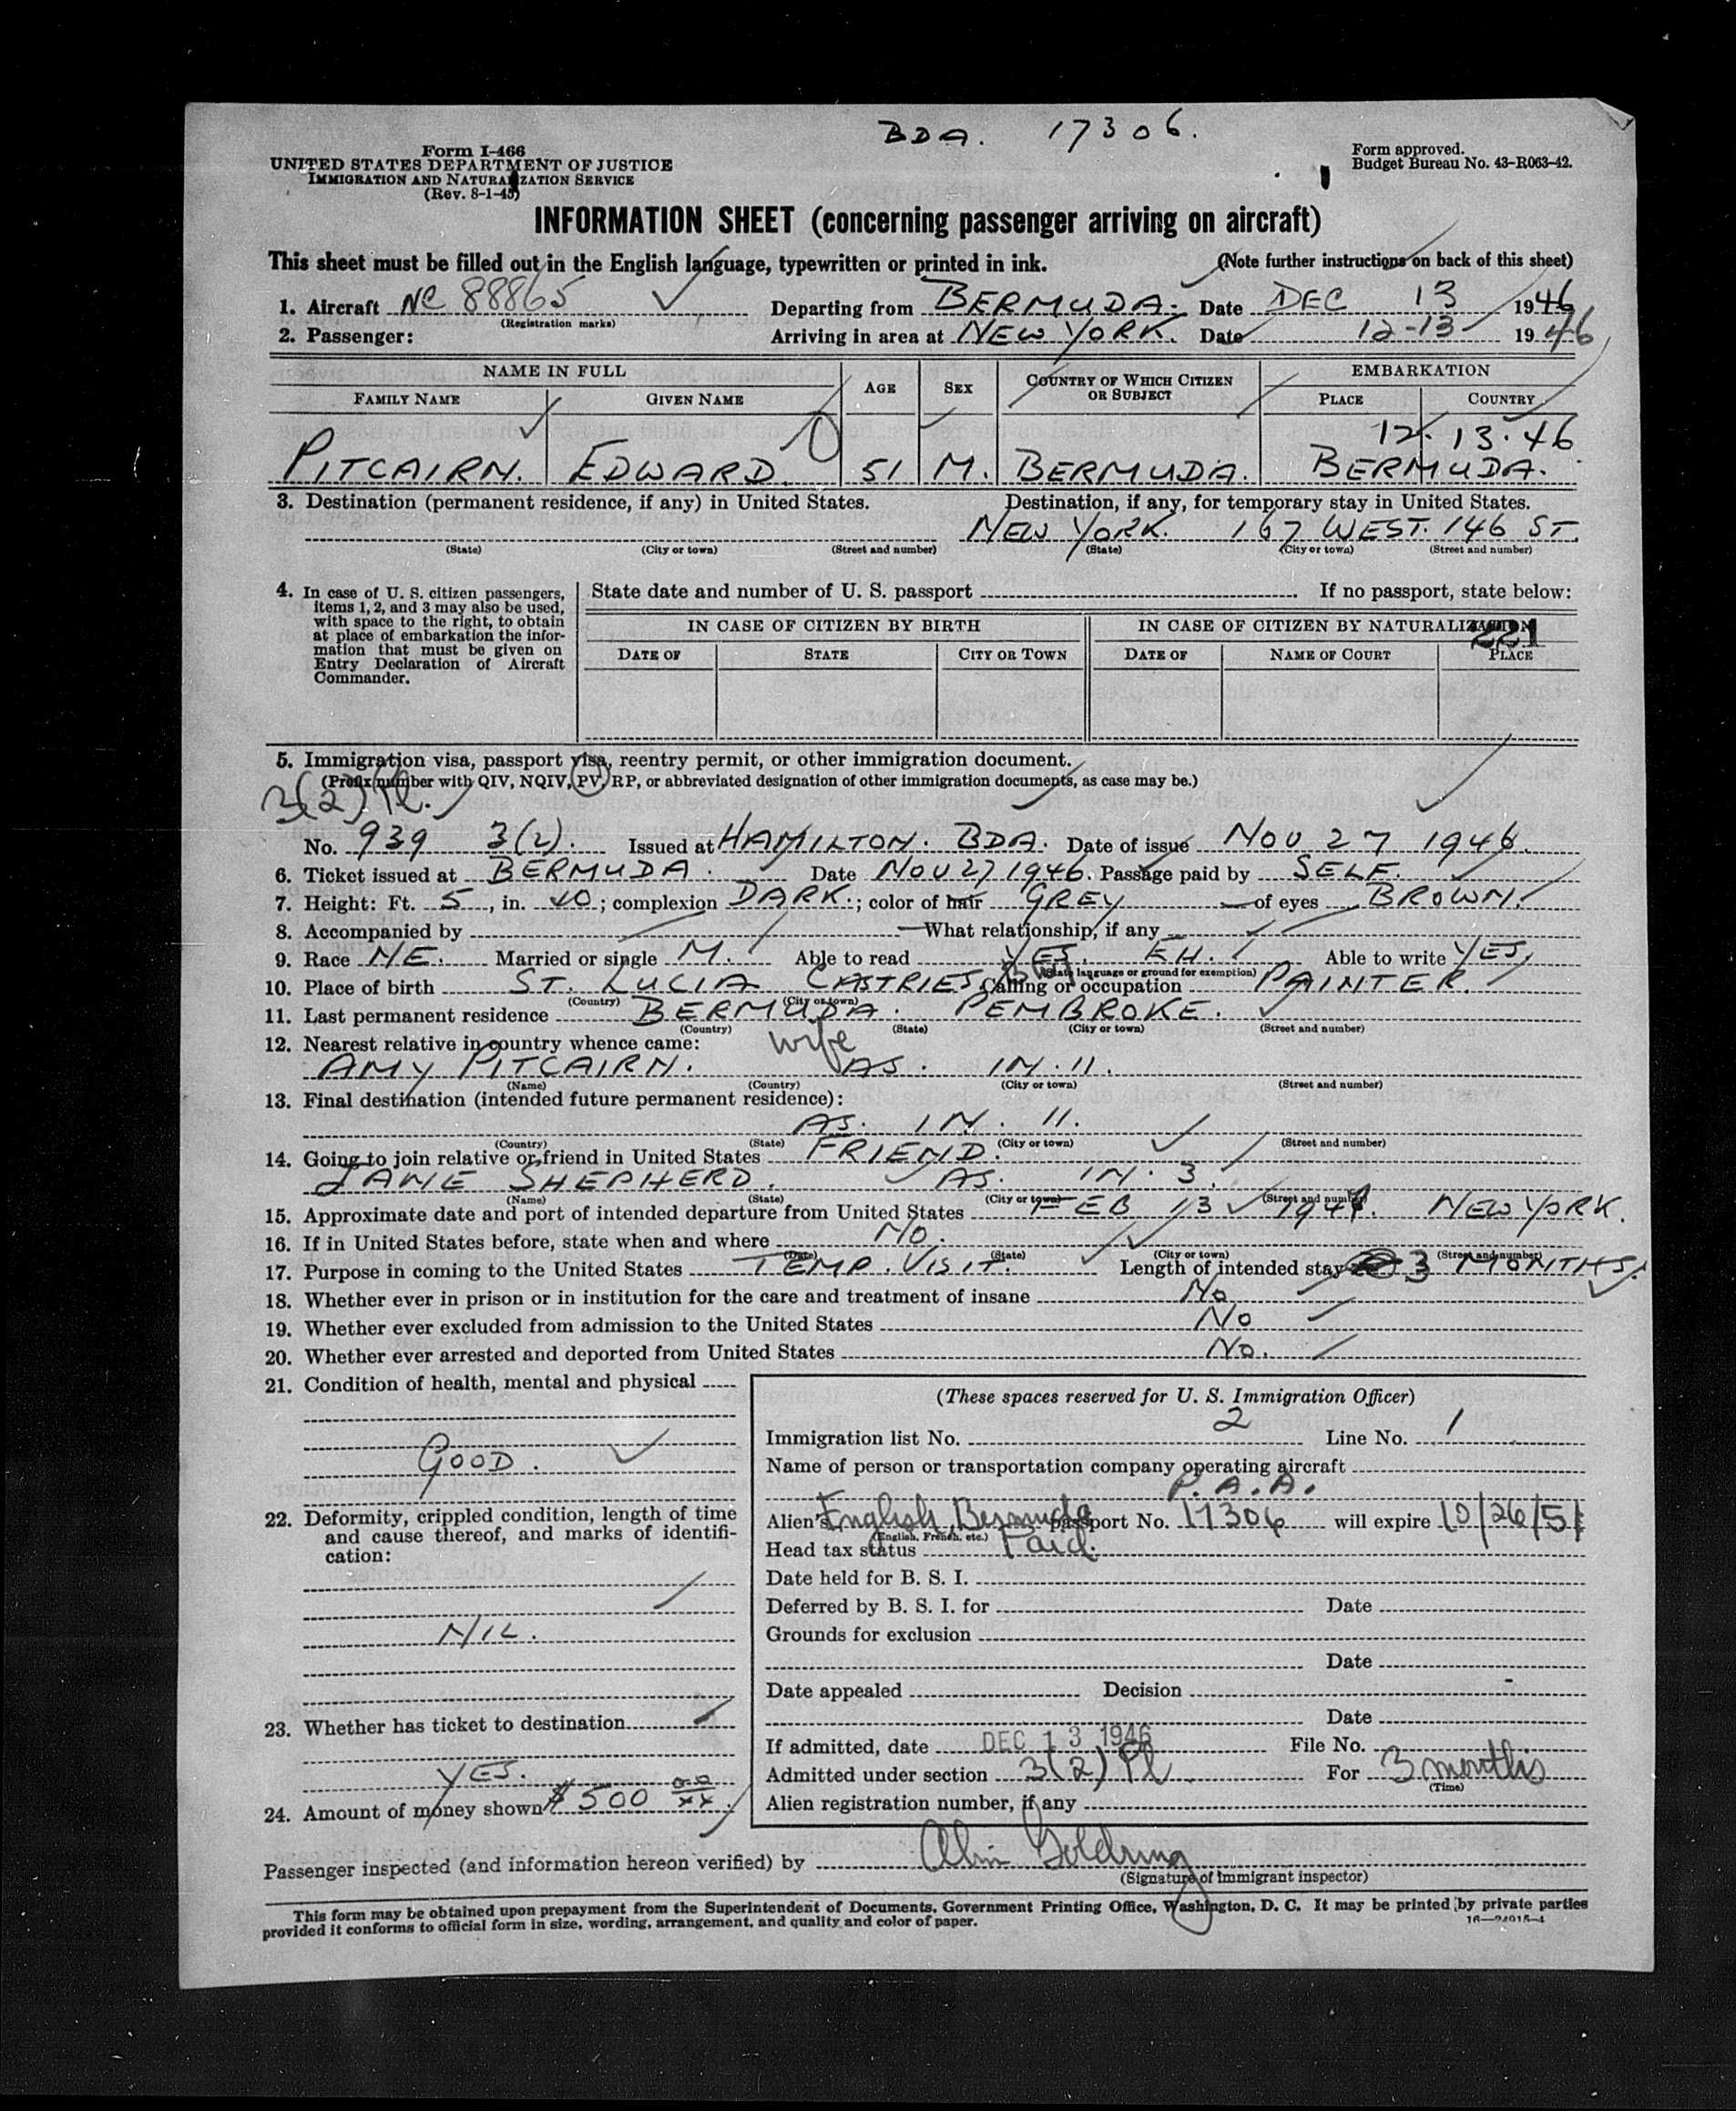 BDA. 17306.
Form I-466
UNITED STATES DEPARTMENT OF JUSTICE
IMMIGRATION AND NATURALIZATION SERVICE
(Rev. 8-1-45)
Form approved.
Budget Bureau No. 43-R063-42.
INFORMATION SHEET (concerning passenger arriving on aircraft)
This sheet must be filled out in the English language, typewritten or printed in ink. (Note further instructions on back of this sheet)
1. Aircraft NC 88865 Departing from BERMUDA. Date DEC 13 1946
(Registration marks)
2. Passenger: Arriving in area at NEW YORK. Date 12-13 1946
NAME IN FULL AGE SEX COUNTRY OF WHICH CITIZEN OR SUBJECT EMBARKATION
FAMILY NAME GIVEN NAME PLACE COUNTRY
12.13.46
PITCAIRN. EDWARD. 51 M. BERMUDA. BERMUDA.
3. Destination (permanent residence, if any) in United States. Destination, if any, for temporary stay in United States.
NEW YORK. 167 WEST. 146 ST.
(State) (City or town) (Street and number) (State) (City or town) (Street and number)
4. In case of U. S. citizen passengers, items 1, 2, and 3 may also be used, with space to the right, to obtain at place of embarkation the information that must be given on Entry Declaration of Aircraft Commander.
State date and number of U. S. passport If no passport, state below:
IN CASE OF CITIZEN BY BIRTH IN CASE OF CITIZEN BY NATURALIZATION
221
DATE OF STATE CITY OR TOWN DATE OF NAME OF COURT PLACE
5. Immigration visa, passport visa, reentry permit, or other immigration document.
(Prefix number with QIV, NQIV, PV, RP, or abbreviated designation of other immigration documents, as case may be.)
3(2) Pl.
No. 939 3(2). Issued at HAMILTON. BDA. Date of issue NOV 27 1946.
6. Ticket issued at BERMUDA. Date NOV 27 1946. Passage paid by SELF.
7. Height: Ft. 5, in. 10; complexion DARK.; color of hair GREY of eyes BROWN.
8. Accompanied by What relationship, if any
9. Race NE. Married or single M. Able to read YES. EH. Able to write YES,
(State language or ground for exemption)
10. Place of birth ST. LUCIA CASTRIES, BWI Calling or occupation PAINTER.
(Country) (City or town)
11. Last permanent residence BERMUDA. PEMBROKE.
(Country) (State) (City or town) (Street and number)
12. Nearest relative in country whence came: wife
AMY PITCAIRN. AS. IN. 11.
(Name) (Country) (City or town) (Street and number)
13. Final destination (intended future permanent residence):
AS. IN. 11.
(Country) (State) (City or town) (Street and number)
14. Going to join relative or friend in United States FRIEND.
JANE SHEPHERD. AS. IN. 3.
(Name) (State) (City or town) (Street and number)
15. Approximate date and port of intended departure from United States FEB 13 1947. NEW YORK.
16. If in United States before, state when and where NO.
(Date) (State) (City or town) (Street and number)
17. Purpose in coming to the United States TEMP. VISIT. Length of intended stay 3 MONTHS.
18. Whether ever in prison or in institution for the care and treatment of insane No
19. Whether ever excluded from admission to the United States No
20. Whether ever arrested and deported from United States No.
21. Condition of health, mental and physical
GOOD.
22. Deformity, crippled condition, length of time and cause thereof, and marks of identification:
NIL.
23. Whether has ticket to destination
YES.
24. Amount of money shown $500 00/xx
(These spaces reserved for U. S. Immigration Officer)
Immigration list No. 2 Line No. 1
Name of person or transportation company operating aircraft
P.A.A.
Alien's English, Bermuda passport No. 17306 will expire 10/26/51
(English, French, etc.)
Head tax status Paid.
Date held for B. S. I.
Deferred by B. S. I. for Date
Grounds for exclusion
Date
Date appealed Decision
Date
If admitted, date DEC 13 1946 File No.
Admitted under section 3(2) Pl. For 3 months
(Time)
Alien registration number, if any
Passenger inspected (and information hereon verified) by Goldring
(Signature of immigrant inspector)
This form may be obtained upon prepayment from the Superintendent of Documents, Government Printing Office, Washington, D. C. It may be printed by private parties
provided it conforms to official form in size, wording, arrangement, and quality and color of paper.
16—24915-4